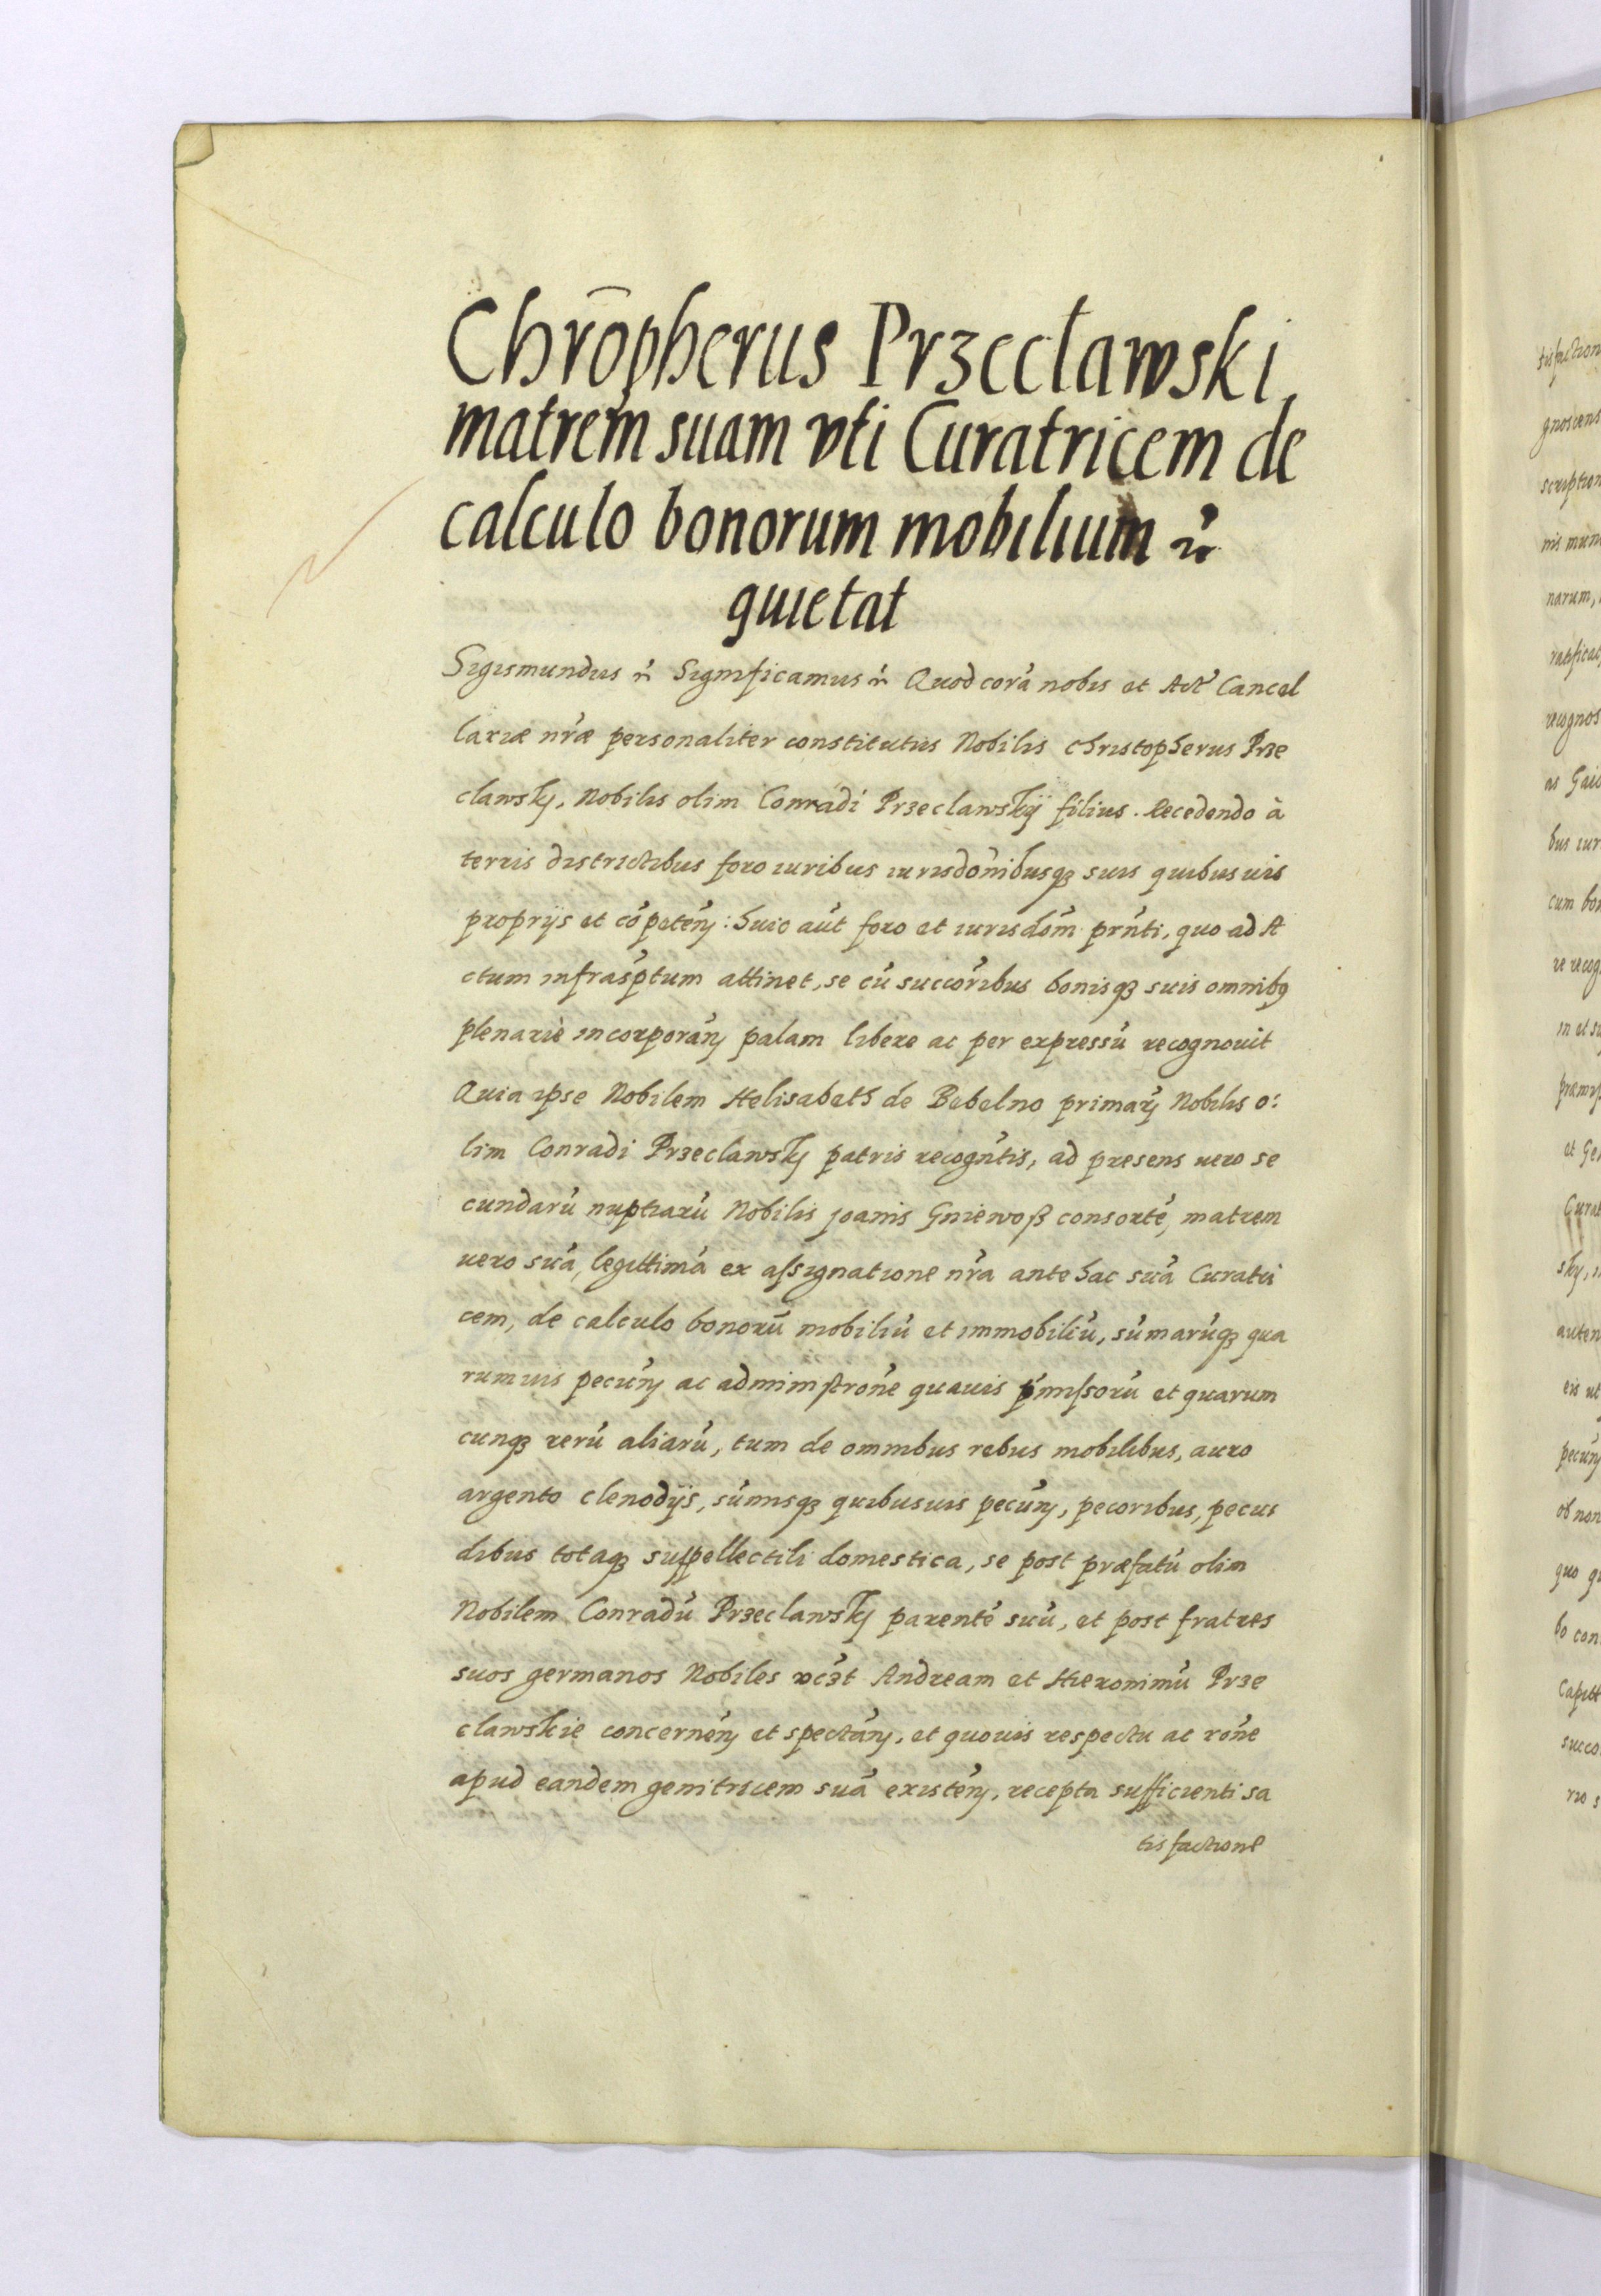 Chrõpherus Przecławski
matrem suam vti Curatricem de
calculo bonorum mobilium rc̃
quietat
Sigismundus rc̃ Significamus rc̃ Quod corã nobis et Act̃ Cancel
lariæ nr̃æ personaliter constitutus Nobilis Christopherus Prze
clawsky, Nobilis olim Conradi Przeclawskÿ filius. Recedendo à
terris districtibus foro iuribus iurisdõnibusqꝫ suis quibusuis
proprijs et cõpetẽn: huic aũt foro et iurisdõm prñti, quo ad A
ctum infrasc̃ptum attinet, se cũ succõribus bonisqꝫ suis omnibꝰ
plenariè incorporãn palam libere ac per expressũ recognouit
Quia ipse Nobilem Helisabeth de Bebelno primar̃ Nobilis o:
lim Conradi Przeclawsky patris recogñtis, ad presens uero se
cundarũ nuptiarũ Nobilis Joãnis Gniewoß consortẽ, matrem
uero suã, legittimã ex assignatione nr̃a ante hac suã Curatri
cem, de calculo bonorũ mobiliũ et immobiliũ, sũmarũqꝫ qua
rumuis pecũn ac administrõne quauis p̃missorũ et quarum
cunqꝫ rerũ aliarũ, tum de omnibus rebus mobilibus, auro
argento clenodijs, sũmisqꝫ quibusuis pecũn, pecoribus, pecu
dibus totaqꝫ suppellectili domestica, se post præfatũ olim
Nobilem Conradũ Przeclawsky parentẽ suũ, et post fratres
suos germanos Nobiles Andream et Hieronimũ Prze
clawskie concernẽn et spectãn, et quouis respectu ac rõne
apud eandem genitricem suã existẽn, recepta sufficienti sa
tisfactione